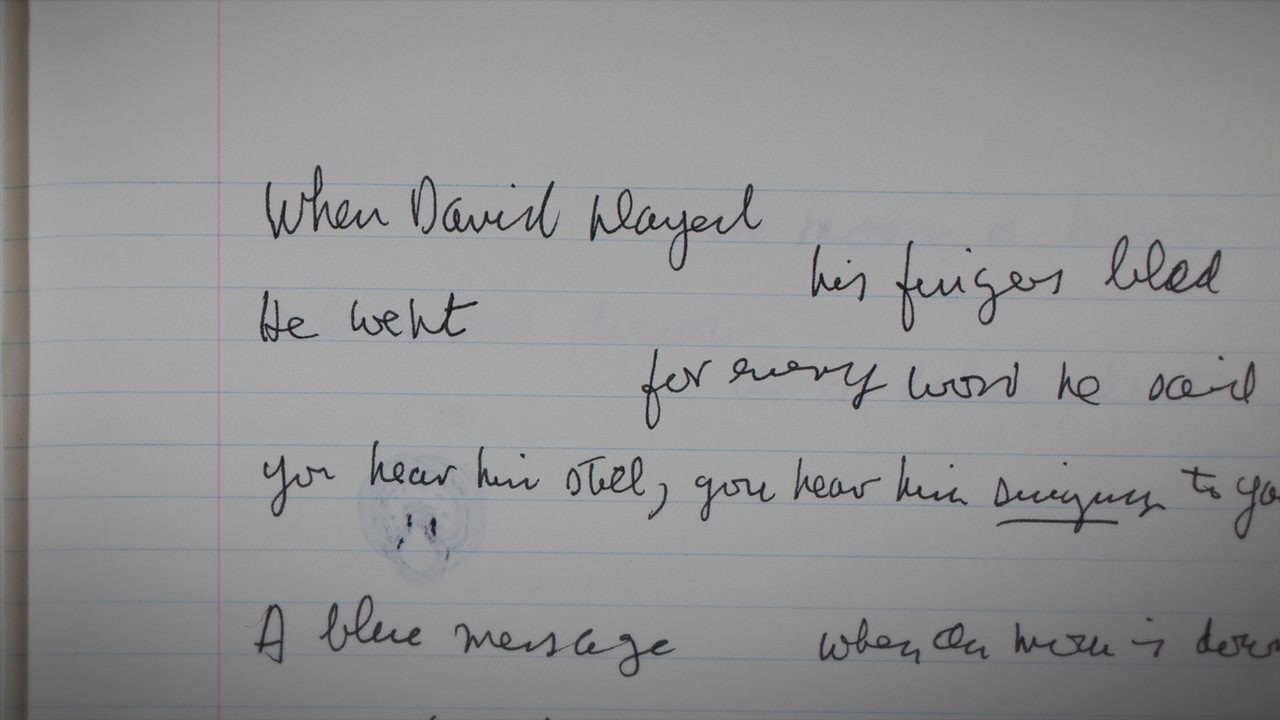 When David played
his fingers bled
He wept
for every word he said
you hear him still, you hear him singing to yo
A blue message when moon is dow